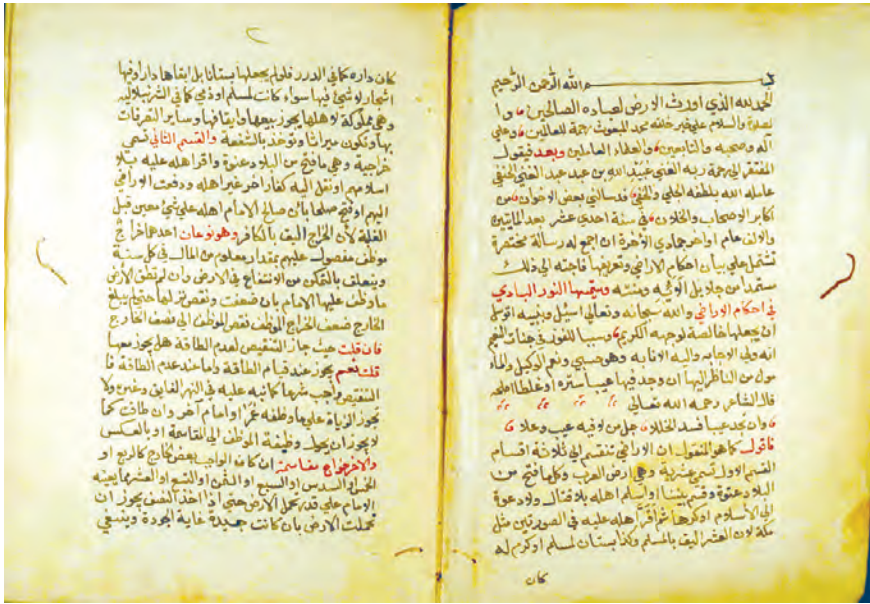 بسم الله الرحمن الرحيم
الحمد لله الذي اورث الارض لعباده الصالحين وا
لصلاة والسلام على خير خلقه محمد المبعوث رحمة للعالمين وعلى
آله وصحبه والتابعين والعلماء العاملين وبعد فيقول
المفتقر الى رحمة ربه الغني عبيد الله بن عبد عبد الغني الحنفي
عامله الله بلطفه الجلي والخفي قد سالني بعض الاخوان من
أكابر الاصحاب والخلان في سنة احدى عشر بعد المايتين
والالف عام اواخر جمادى الآخرة ان اجمع له رسالة مختصرة
تشتمل على بيان احكام الاراضي وتعريفها فاجبته الى ذلك
مستمدا من جلايل ومننه وسميتها النور البادي
في احكام الاراضي والله سبحانه وتعالى اسئل وبنبيه اتوسل
أن يجعلها خالصة لوجهه الكريم وسببا للفوز في جنات النعيم
انه ولي الاجابه واليه الانابه وهو حسبي ونعم الوكيل والما
مول من الناظر اليها ان وجد فيها عيبا ستره او غلطا اصلحه
قال الشاعر رحمه الله تعالى
وان تجد عيبا فسد الخللا جل من لا فيه عيب وعلا
فاقول كما هو المنقول ان الاراضي تنقسم الى ثلاثة اقسام
القسم الاول تسمى عشرية وهي ارض العرب وكلما فتح من
البلاد عنوة وقسم بيننا او اسلم اهله بلا قتال ولا دعوة
الى الاسلام او كرها ثم اقر اهله عليه في الصورتين مثل
مكة لان العشر اليق بالمسلم وكذا بستان لمسلم او كرم له
كان
كان داره كما في الدرر فلو لم يجعلها بستانا بل ابقاها دارا وفيها
اشجار لا شيئ فيها سواء كانت لمسلم او ذمي كما في الشرنبلاليه
وهي مملوكة لاهلها يجوز بيعها وايقافها وساير التصرفات
بها وتكون ميراثا وتوخذ بالشفعة والقسم الثاني تسمى
خراجية وهي ما فتح من البلاد عنوة واقر اهله عليه بلا
اسلامهم او نقل اليه كفار اخر غير اهله ودفعت الاراضي
اليهم او فتح صلحا بأن صالح الامام اهله على شيئ معين قبل
الغلة لأن الخراج اليق بالكافر وهو نوعان احدهما خراج
موظف مفصول عليهم بمقدار معلوم من المال في كل سنة
ويتعلق بالتمكن من الانتفاع في الارض وان لم تطق الأرض
ما وظف عليها الامام بان ضعفت ونقص نزلها حتى لم يبلغ
الخارج ضعف الخراج الموظف نقص الموظف الى نصف الخارج
فان قلت حيث جاز التنقيص لعدم الطاقة هل يجوز معها
قلت نعم يجوز عند قيام الطاقة واما عند عدم الطاقة فا
لتنقيص واجب شرها كما نبه عليه في النهر الفايق وغيره ولا
تجوز الزيادة على ما وظفه عمر او امام آخر وان طاقت كما
لا يجوز ان يحول وظيفة الموظف الى المقاسمة او بالعكس
والاخر خراج مقاسمة ان كان الواجب بعض الخارج كالربع او
الخمس او السدس او السبع او الثمن او التسع او العشر مما يعينه
الامام على قدر تحمل الارض حتى اذا اخذ النصف يجوز ان
تحملت الارض بان كانت جيدة غاية الجودة وينبغي